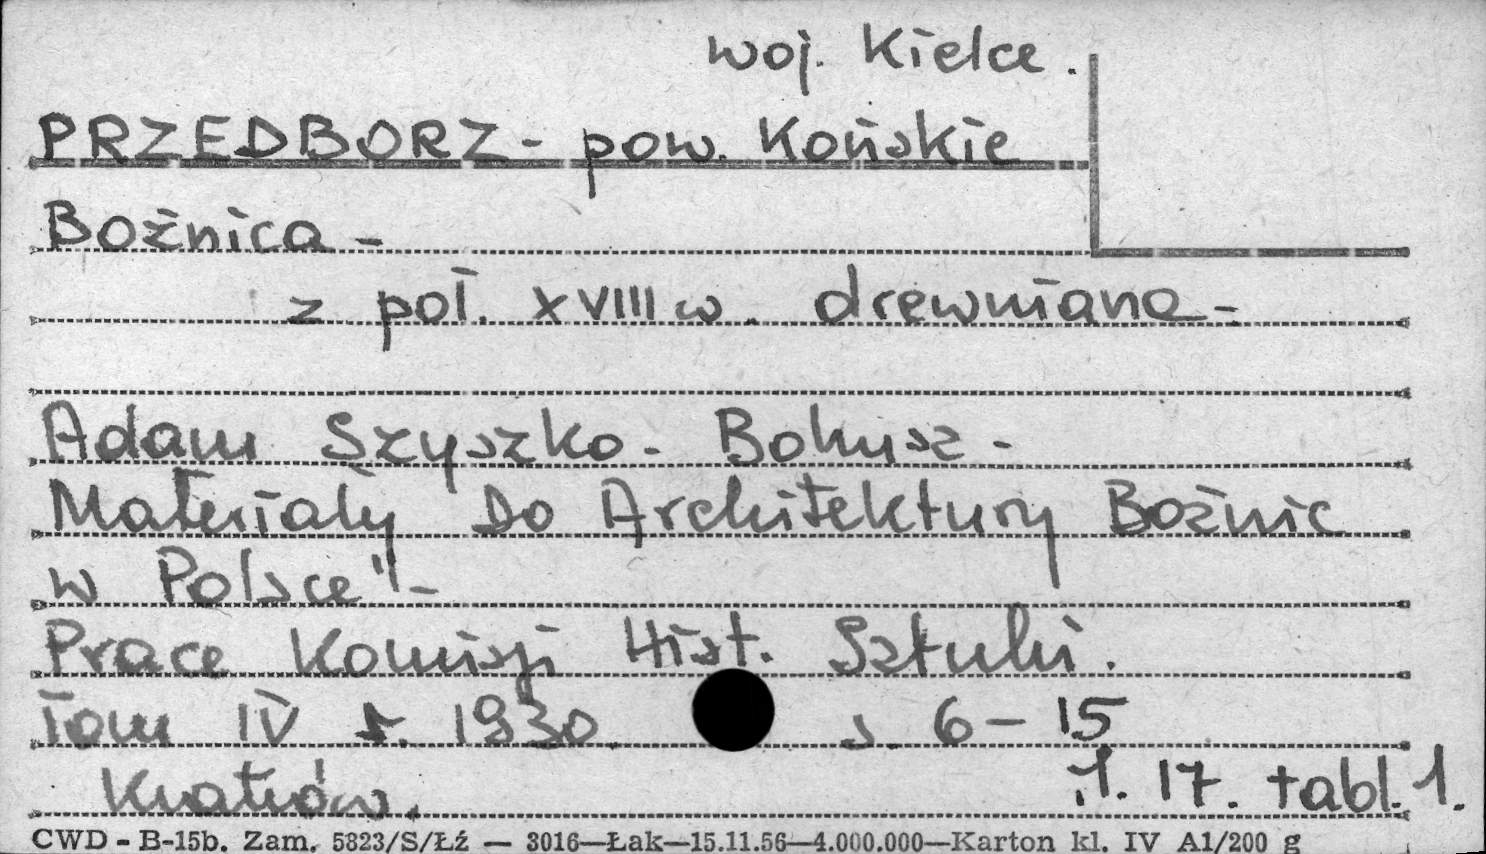 woj. Kielce.
PRZEDBORZ - pow. Końskie
Bożnica -
z poł. XVIII w. drewniana -
Adam Szyszko - Bohusz -
Materiały Do Architektury Bożnic
w Polsce" -
Prace Komisji Hist. Sztuki.
Tom IV z. 1930. s. 6 - 15
Kraków. il. 17. tabl. 1.
CWD - B-15b. Zam. 5823/S/Łź — 3016—Łak—15.11.56—4.000.000—Karton kl. IV A1/200 g